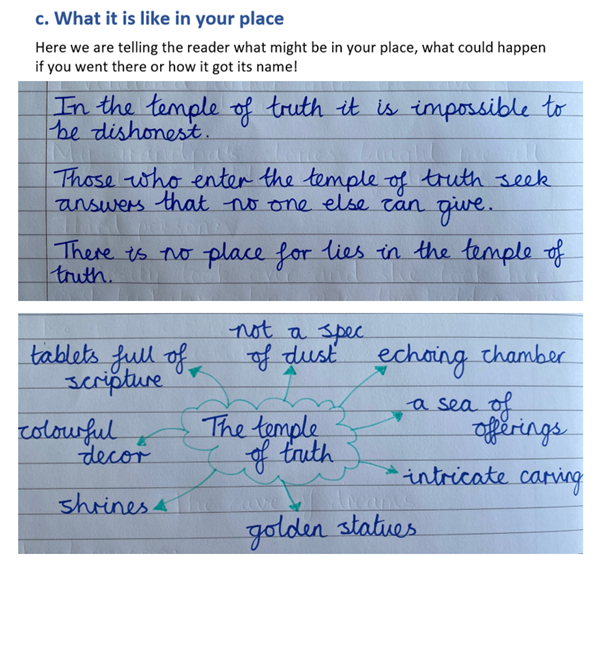 c. What it is like in your place
Here we are telling the reader what might be in your place, what could happen
if you went there or how it got its name!
In the temple of truth it is impossible to
be dishonest.
Those who enter the temple of truth seek
answers that no one else can give.
There is no place for lies in the temple of
truth.
not a spec
of dust
tablets full of
scripture
echoing chamber
a sea of
offerings
colourful
decor
The temple
of truth
intricate carving
shrines
golden statues